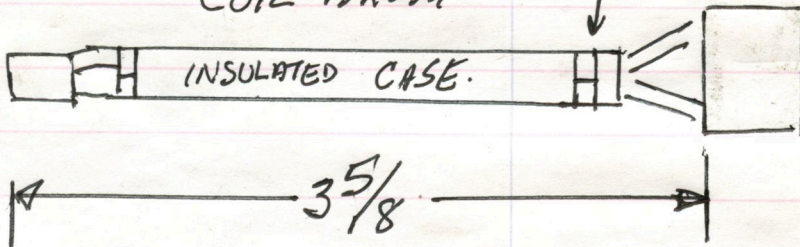 INSULATED CASE.
3 5/8